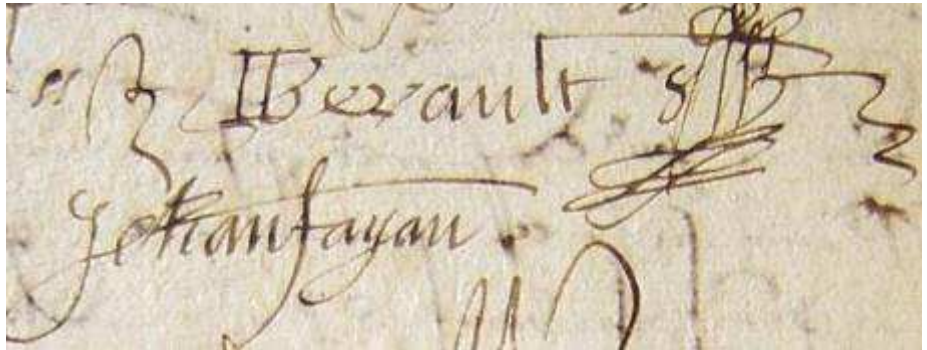 IBerault
Jehan fayau